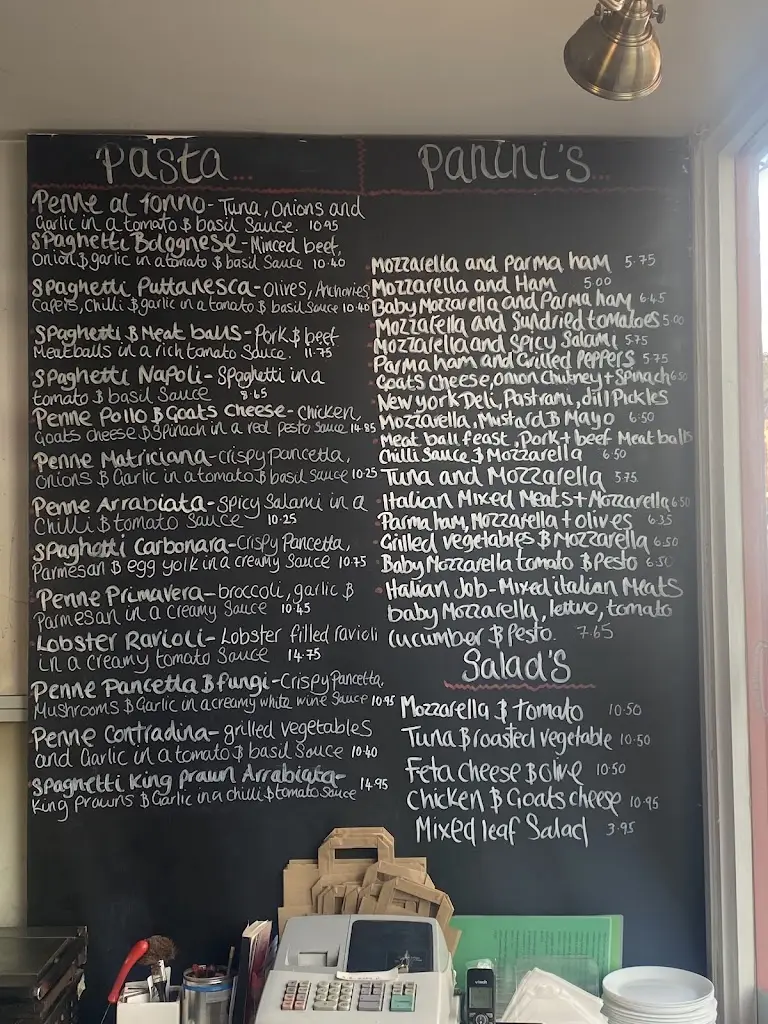 Pasta...
Penne al Tonno- Tuna, Onions and
Garlic in a tomato & basil Sauce. 10.95
Spaghetti Bolognese- Minced beef,
Onion & garlic in a tomato & basil Sauce 10.40
Spaghetti Puttanesca- Olives, Anchovies
Capers, Chilli & garlic in a tomato & basil Sauce 10.40
Spaghetti & Meat balls- Pork & beef
Meatballs in a rich tomato Sauce. 11.75
Spaghetti Napoli- Spaghetti in a
tomato & basil Sauce 8.65
Penne Pollo & Goats Cheese- Chicken,
Goats cheese & Spinach in a red pesto Sauce 14.85
Penne Matriciana- crispy pancetta,
Onions & Garlic in a tomato & basil Sauce 10.25
Penne Arrabiata- Spicy Salami in a
Chilli & tomato Sauce 10.25
Spaghetti Carbonara- Crispy Pancetta,
Parmesan & egg yolk in a creamy Sauce 10.75
Penne Primavera- broccoli, garlic &
Parmesan in a creamy Sauce 10.45
Lobster Ravioli- Lobster filled ravioli
in a creamy tomato Sauce 14.75
Penne Pancetta & fungi- Crispy Pancetta,
Mushrooms & Garlic in a creamy white wine Sauce 10.95
Penne Contradina- grilled vegetables
and Garlic in a tomato & basil Sauce 10.40
Spaghetti King Prawn Arrabiata-
King Prawns & Garlic in a chilli & tomato Sauce 14.95
Panini's...
Mozzarella and Parma ham 5.75
Mozzarella and Ham 5.00
Baby Mozzarella and Parma ham 6.45
Mozzarella and Sundried tomatoes 5.00
Mozzarella and Spicy Salami 5.75
Parma ham and Grilled Peppers 5.75
Goats cheese, onion Chutney + Spinach 6.50
New york Deli, Pastrami, dill Pickles
Mozzarella, Mustard & Mayo 6.50
Meat ball feast, Pork + beef Meat balls
Chilli Sauce & Mozzarella 6.50
Tuna and Mozzarella 5.75
Italian Mixed Meats + Mozzarella 6.50
Parma ham, Mozzarella + olives 6.35
Grilled vegetables & Mozzarella 6.50
Baby Mozzarella tomato & Pesto 6.50
Italian Job- Mixed italian Meats
baby Mozzarella, lettuo, tomato
cucumber & Pesto. 7.65
Salad's
Mozzarella & tomato 10.50
Tuna & roasted vegetable 10.50
Feta cheese & olive 10.50
Chicken & Goats cheese 10.95
Mixed leaf Salad 3.95